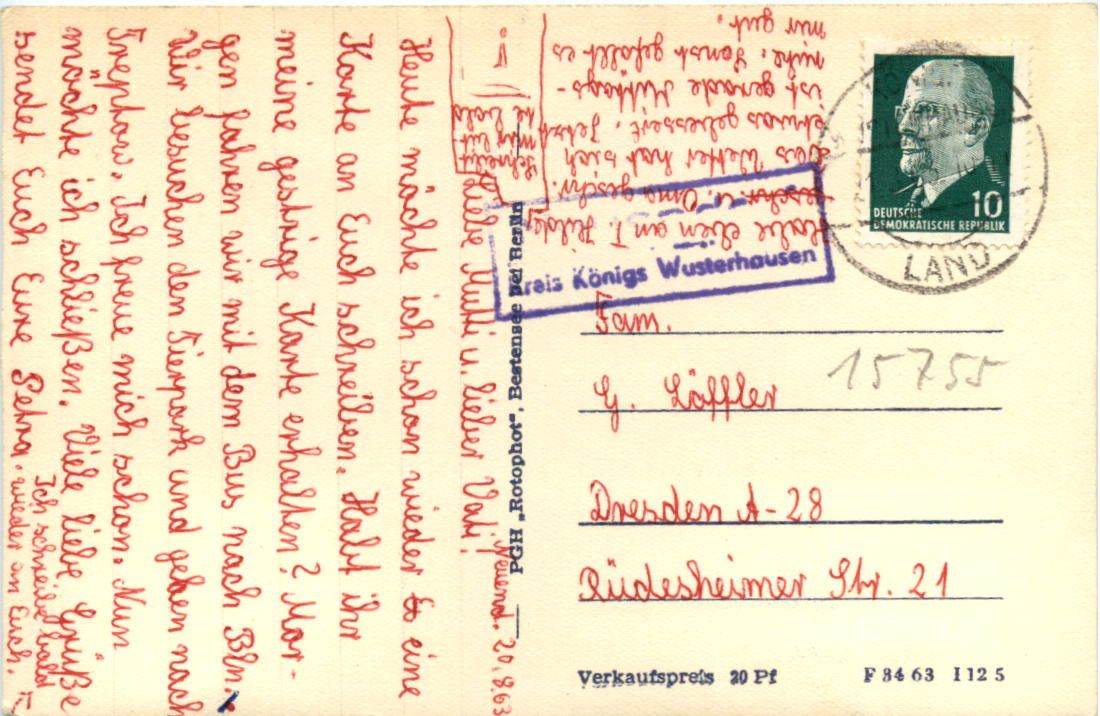 Neuend. 20.8.63
Liebe Mutti u. lieber Vati!
Heute möchte ich schon wieder eine
Karte an Euch schreiben. Habt ihr
meine gestrige Karte erhalten? Mor-
gen fahren wir mit dem Bus nach Bln.
Wir besuchen den Tierpark und gehen nach
Treptow. Ich freue mich schon. Nun
möchte ich schließen. Viele liebe Grüße
sendet Euch Eure Petra.
Ich schreibe bald
wieder an Euch.
Schreibt
mir bit
te bald
Habe eben an T. Hilde
u. Oma geschr.
Das Wetter hat sich
etwas gebessert. Jetzt
ist gerade Mittags-
ruhe. Sonst gefällt es
mir gut.
PGH „Rotophot", Bestensee bei Berlin
Kreis Königs Wusterhausen
DEUTSCHE
DEMOKRATISCHE REPUBLIK
10
LAND
Fam.
G. Löffler
15755
Dresden A-28
Rüdesheimer Str. 21
Verkaufspreis 20 Pf
F 84 63 I 12 5